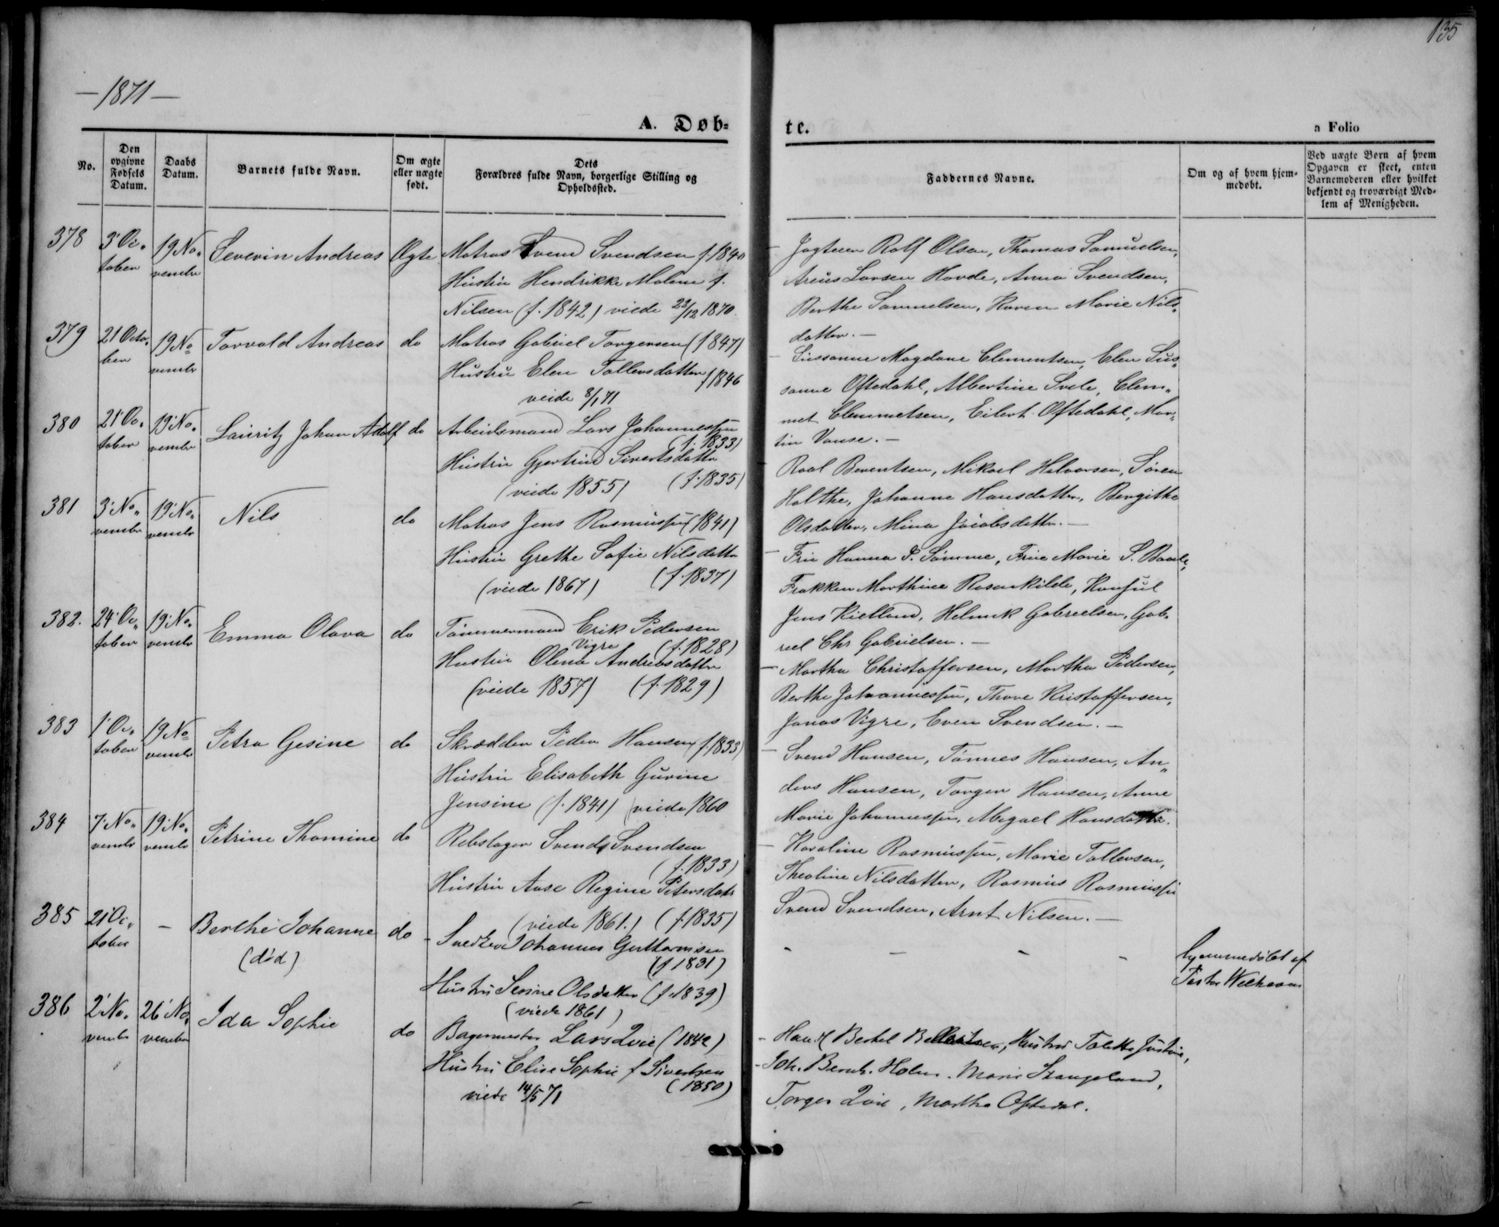 135
—1871—
A. Døb=
te.
a Folio
No.
Den opgivne Fødsels Datum.
Daabs Datum.
Barnets fulde Navn.
Om ægte eller uægte født.
Dets Forældres fulde Navn, borgerlige Stilling og Opholdssted.
Faddernes Navne.
Om og af hvem hjemmedøbt.
Ved uægte Børn af hvem Opgaven er skeet, enten Barnemoderen eller hvilket bekjendt og troværdigt Medlem af Menigheden.
378
3' Oc-
tober
19 No-
vembr
Severin Andreas
Ægte
Matros Svend Svendsen f. 1840
Hustru Hendrikke Malene f.
Nilsen (f. 1842) viede 23/12 1870.
Rolf Olsen, Thomas Samuelsen,
Areus Larsen Hovde, Anna Svendsen,
Berthe Samuelsen, Karen Marie Nils-
datter. —
379
21 Octo-
ber
19 No
vembr
Torvald Andreas
do
Matros Gabriel Torgersen (f 1847)
Hustru Elen Tollevsdatter f 1846
viede 8/1 71
Sussanne Magdane Clementsen, Elen Sus-
sanne Oftedahl, Albertine Svele, Clem-
met Clemmetsen, Eilert Oftedahl, Mar-
tin Vanse. —
380
21' Oc-
tober
19' No-
vembr
Lauritz Johan Adolf
do
Arbeidsmand Lars Johannessen
(f. 1833)
Hustru Gjertrud Sivertsdatter
(viede 1855) (f. 1835)
Roal Berentsen, Mikael Halvorsen, Søren
Holthe, Johanne Hansdatter, Bergithe
Olsdatter, Mina Jacobsdatter. —
381
3' No-
vembr
19' No-
vembr
Nils
do
Matros Jens Rasmussen (f 1841)
Hustru Grethe Sofie Nilsdatter
(viede 1867) (f. 1837)
Frue Hanna P. Sømme, Frue Marie S.
Frøken Marthine Rosenkilde, Konsul
Jens Kielland, Helmik Gabrielsen, Gab-
riel Chr Gabrielsen. —
382.
24' Oc-
tober
19' No-
vembr
Emma Olava
do
Tømmermand Erik Pedersen
Vigre (f. 1828)
Hustru Olena Andreasdatter
(viede 1857) (f. 1829)
Martha Christoffersen, Martha Pedersen,
Berthe Johannessen, Thore Kristoffersen,
Jonas Vigre, Even Svendsen. —
383
1' Oc-
tober
19 No
vembr
Petra Gesine
do
Skrædder Peder Hansen f. 1833)
Hustru Elisabeth Gurine
Jensine (f. 1841) viede 1860
Svend Hansen, Tønnes Hansen, An-
ders Hansen, Torger Hansen, Anne
Marie Johannessen, Abigael Hansdatter.
384
7' No-
vembr
19' No-
vembr
Petrine Thomine
do
Rebslager Svend Svendsen
(f. 1833)
Hustru Aase Regine Petersdatr
(viede 1861.) (f. 1835)
Karoline Rasmussen, Marie Tollevsen,
Theoline Nilsdatter, Rasmus Rasmussen
Svend Svendsen, Arnt Nilsen. —
385
21' Oc-
tober
—
Berthe Johanne
(død)
do
Johannes Guttormsen
(f 1831)
Hustru Serine Olsdatter (f. 1839)
(viede 1861)
- - -
hjemmedøbt af
Pastor
386
2' No-
vembr
26' No-
vember
Ida Sophie
do
Bagermester Lars Qvie (1842)
Hustru Elise Sophie f Sivertsen
(1850)
viede 14/5 71
Bertel Hustru
Joh. Bernh. Holm. Marie Stangeland,
Torger Qvie, Martha Oftedal.